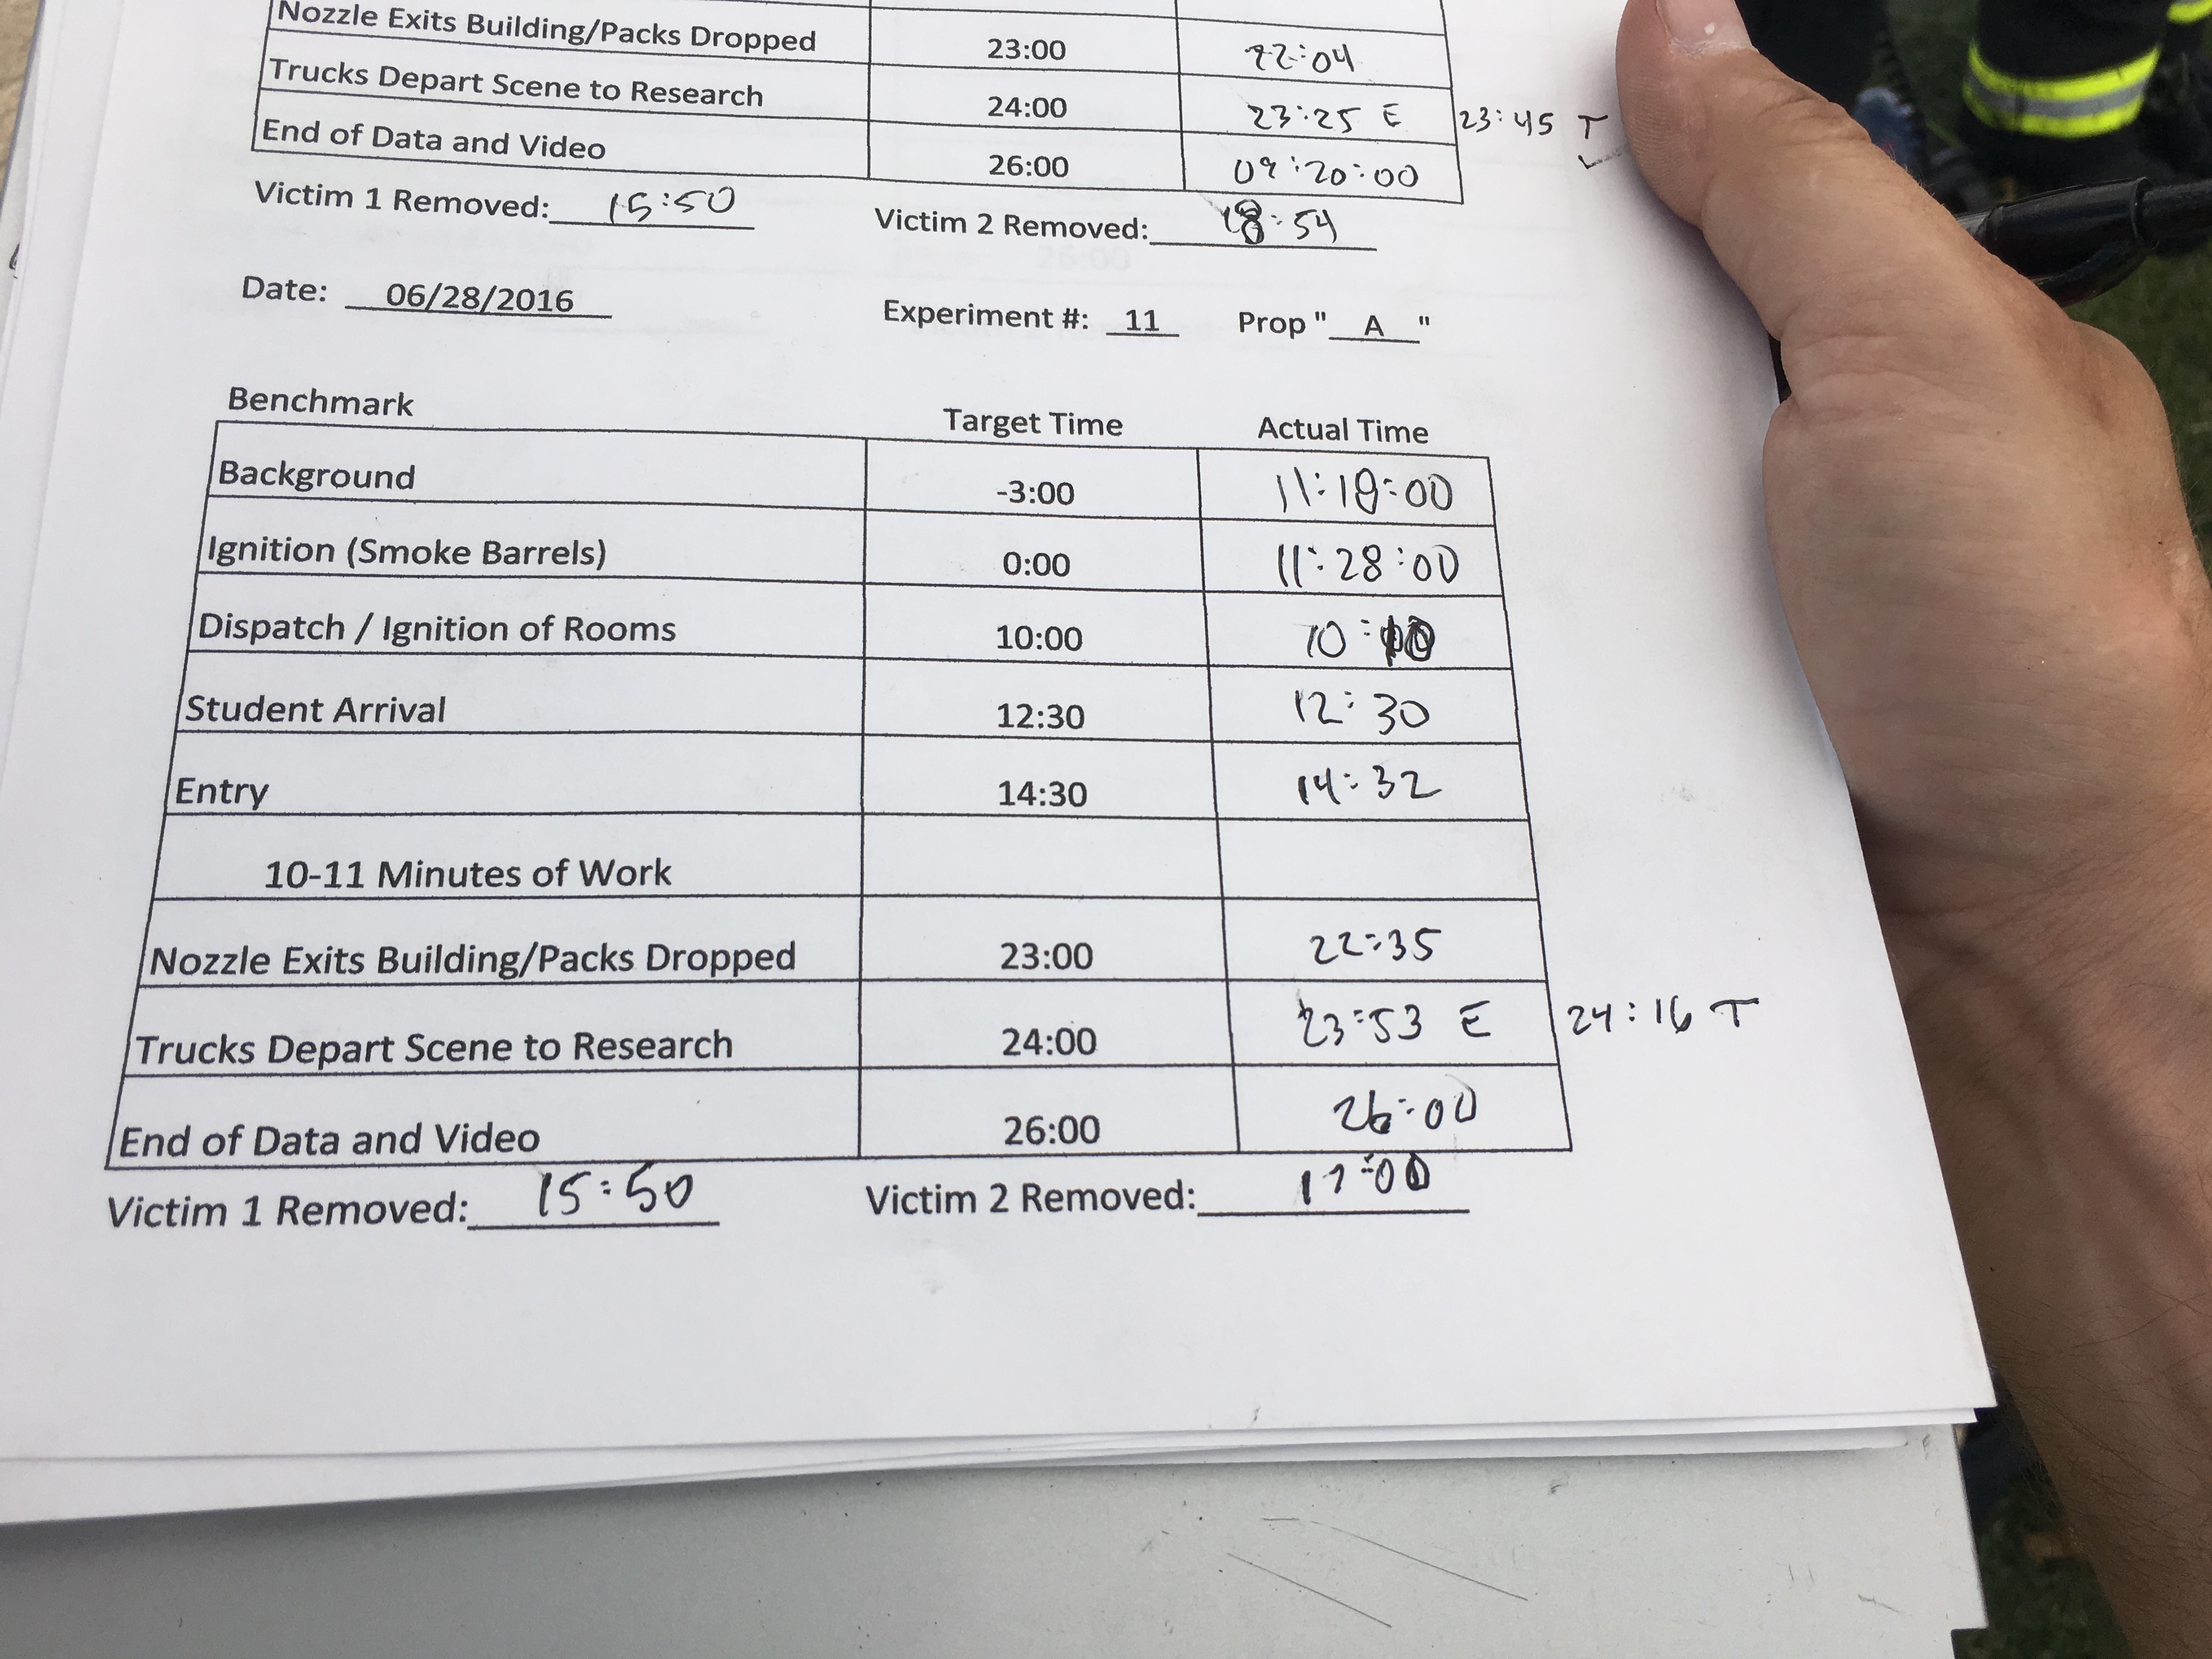 Nozzle Exits Building/Packs Dropped 23:00 22:04
Trucks Depart Scene to Research 24:00 23:25 E 23:45 T
End of Data and Video 26:00 09:20:00
Victim 1 Removed: 15:50 Victim 2 Removed: 18:54
Date: 06/28/2016 Experiment #: 11 Prop " A "
Benchmark Target Time Actual Time
Background -3:00 11:18:00
Ignition (Smoke Barrels) 0:00 11:28:00
Dispatch / Ignition of Rooms 10:00 10:10
Student Arrival 12:30 12:30
Entry 14:30 14:32
10-11 Minutes of Work
Nozzle Exits Building/Packs Dropped 23:00 22:35
Trucks Depart Scene to Research 24:00 23:53 E 24:16 T
End of Data and Video 26:00 26:00
Victim 1 Removed: 15:50 Victim 2 Removed: 17:00